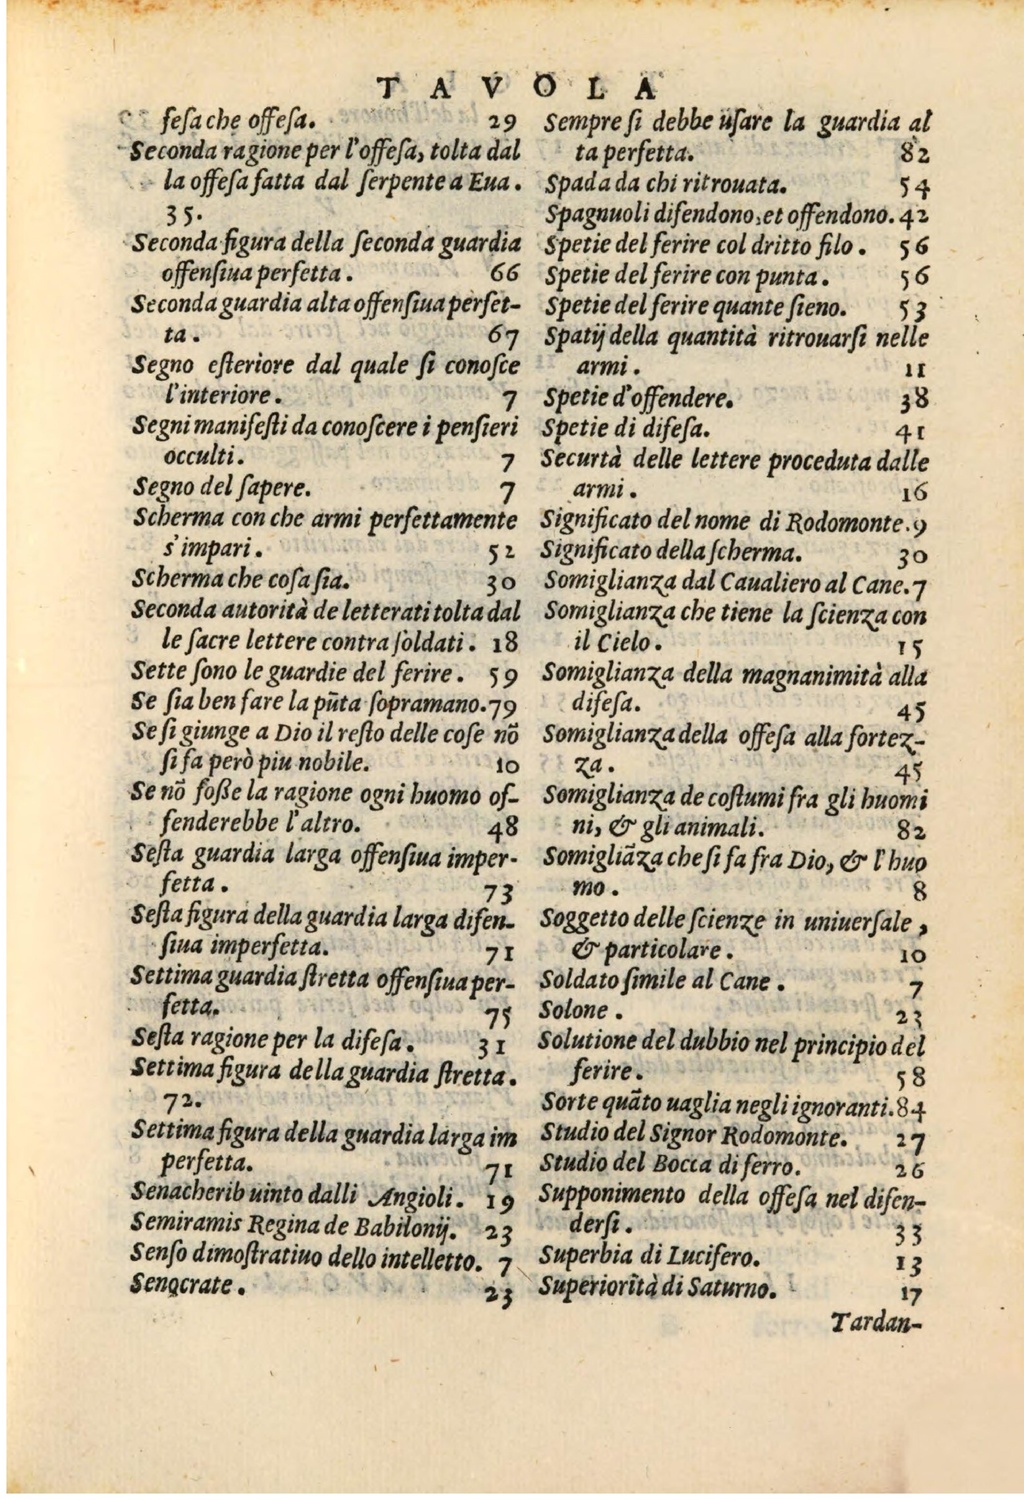 TAVOLA
feſa che offeſa. 29
Seconda ragione per l'offeſa, tolta dal
la offeſa fatta dal ſerpente a Eua.
35.
Seconda figura della ſeconda guardia
offenſiua perfetta. 66
Seconda guardia alta offenſiua perfet-
ta. 67
Segno eſteriore dal quale ſi conoſce
l'interiore. 7
Segni manifeſti da conoſcere i penſieri
occulti. 7
Segno del ſapere. 7
Scherma con che armi perfettamente
s'impari. 52
Scherma che coſa ſia. 30
Seconda autorità de letterati tolta dal
le ſacre lettere contra ſoldati. 18
Sette ſono le guardie del ferire. 59
Se ſia ben fare la pūta ſopramano. 79
Se ſi giunge a Dio il reſto delle coſe nō
ſi fa però piu nobile. 10
Se nō foſſe la ragione ogni huomo of-
fenderebbe l'altro. 48
Seſta guardia larga offenſiua imper-
fetta. 73
Seſta figura della guardia larga difen-
ſiua imperfetta. 71
Settima guardia ſtretta offenſiua per-
fetta. 75
Seſta ragione per la difeſa. 31
Settima figura della guardia ſtretta.
72.
Settima figura della guardia larga im
perfetta. 71
Senacherib uinto dalli Angioli. 19
Semiramis Regina de Babilonij. 23
Senſo dimoſtratiuo dello intelletto. 7
Senocrate. 23
Sempre ſi debbe uſare la guardia al
ta perfetta. 82
Spada da chi ritrouata. 54
Spagnuoli difendono, et offendono. 42
Spetie del ferire col dritto filo. 56
Spetie del ferire con punta. 56
Spetie del ferire quante ſieno. 53
Spatij della quantità ritrouarſi nelle
armi. 11
Spetie d'offendere. 38
Spetie di difeſa. 41
Securtà delle lettere proceduta dalle
armi. 16
Significato del nome di Rodomonte. 9
Significato della ſcherma. 30
Somiglianza dal Caualiero al Cane. 7
Somiglianza che tiene la ſcienza con
il Cielo. 15
Somiglianza della magnanimità alla
difeſa. 45
Somiglianza della offeſa alla fortez-
za. 45
Somiglianza de coſtumi fra gli huomi
ni, & gli animali. 82
Somigliāza che ſi fa fra Dio, & l'huo
mo. 8
Soggetto delle ſcienze in uniuerſale,
& particolare. 10
Soldato ſimile al Cane. 7
Solone. 23
Solutione del dubbio nel principio del
ferire. 58
Sorte quāto uaglia negli ignoranti. 84
Studio del Signor Rodomonte. 27
Studio del Bocca di ferro. 26
Supponimento della offeſa nel difen-
derſi. 33
Superbia di Lucifero. 13
Superiorità di Saturno. 17
Tardan-